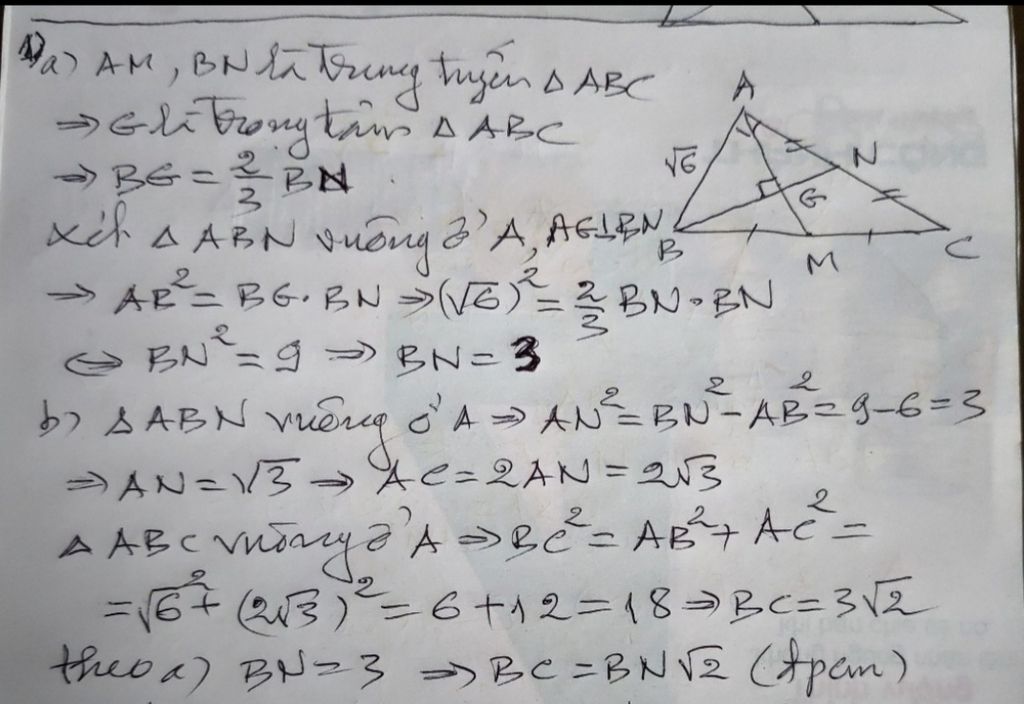 1) a) AM, BN là trung tuyến Δ ABC
⇒ G là trọng tâm Δ ABC
⇒ BG = 2/3 BN
Xét Δ ABN vuông ở A, AG⊥BN
⇒ AB² = BG . BN ⇒ (√6)² = 2/3 BN . BN
⇔ BN² = 9 ⇒ BN = 3
b) Δ ABN vuông ở A ⇒ AN² = BN² - AB² = 9 - 6 = 3
⇒ AN = √3 ⇒ AC = 2AN = 2√3
Δ ABC vuông ở A ⇒ BC² = AB² + AC² =
= √6² + (2√3)² = 6 + 12 = 18 ⇒ BC = 3√2
theo a) BN = 3 ⇒ BC = BN√2 (đpcm)
A
√6
N
G
B
M
C